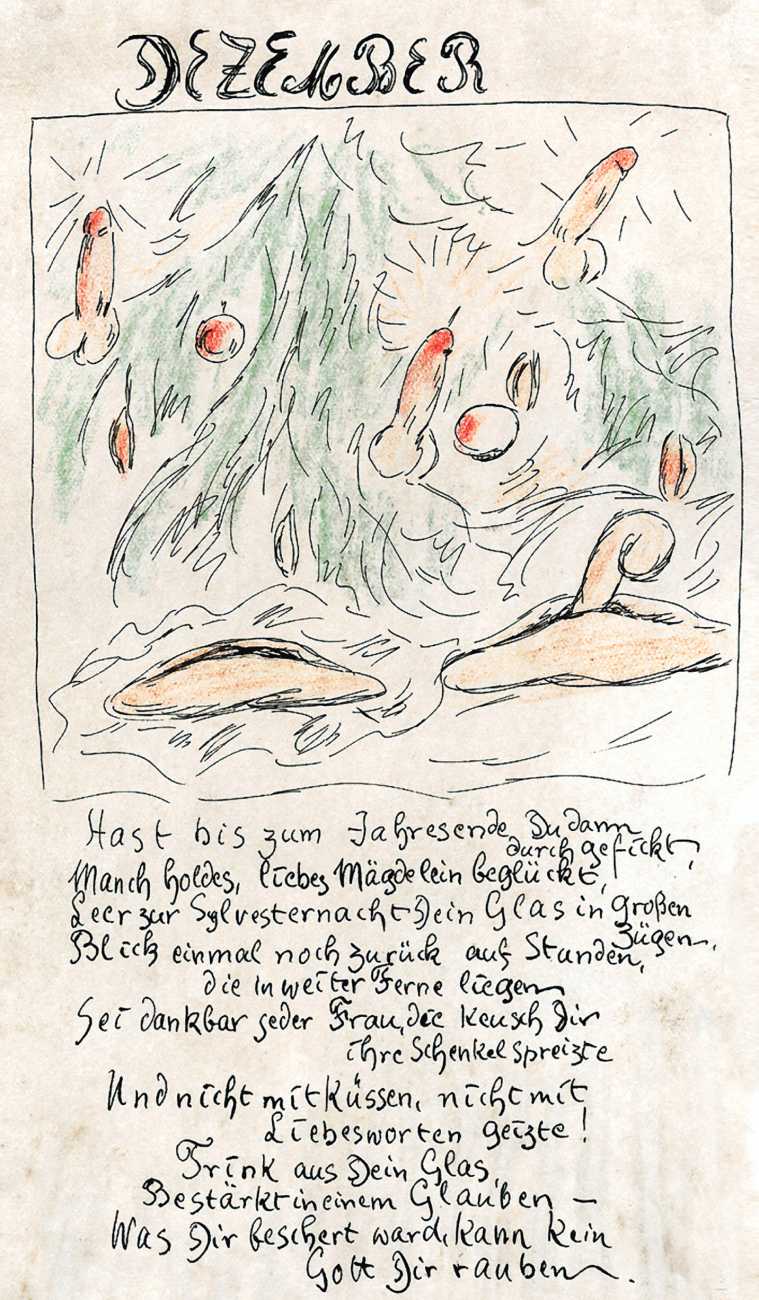 DEZEMBER
Hast bis zum Jahresende Du dann
durchgefickt,
Manch holdes, liebes Mägdelein beglückt,
Leer zur Sylvesternacht Dein Glas in großen
Zügen,
Blick einmal noch zurück auf Stunden,
die in weiter Ferne liegen
Sei dankbar jeder Frau, die keusch Dir
ihre Schenkel spreizte
Und nicht mit Küssen, nicht mit
Liebesworten geizte!
Trink aus Dein Glas,
Bestärkt in einem Glauben –
Was Dir beschert ward, kann kein
Gott Dir rauben.